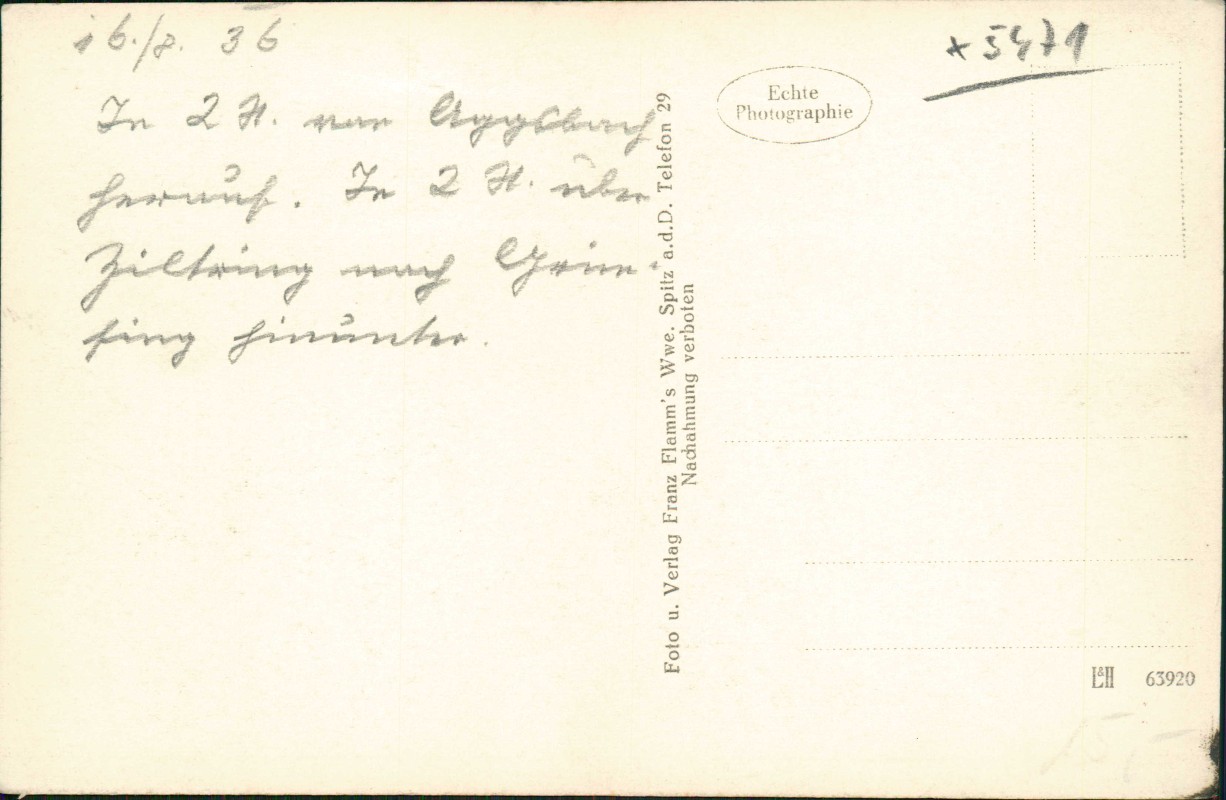 16./8. 36
In 2 St. von Aggsbach
herauf. In 2 St. über
nach Grim-
sing hinunter.
* 5471
Echte
Photographie
Foto u. Verlag Franz Flamm's Wwe. Spitz a.d.D. Telefon 29
Nachahmung verboten
L&H 63920